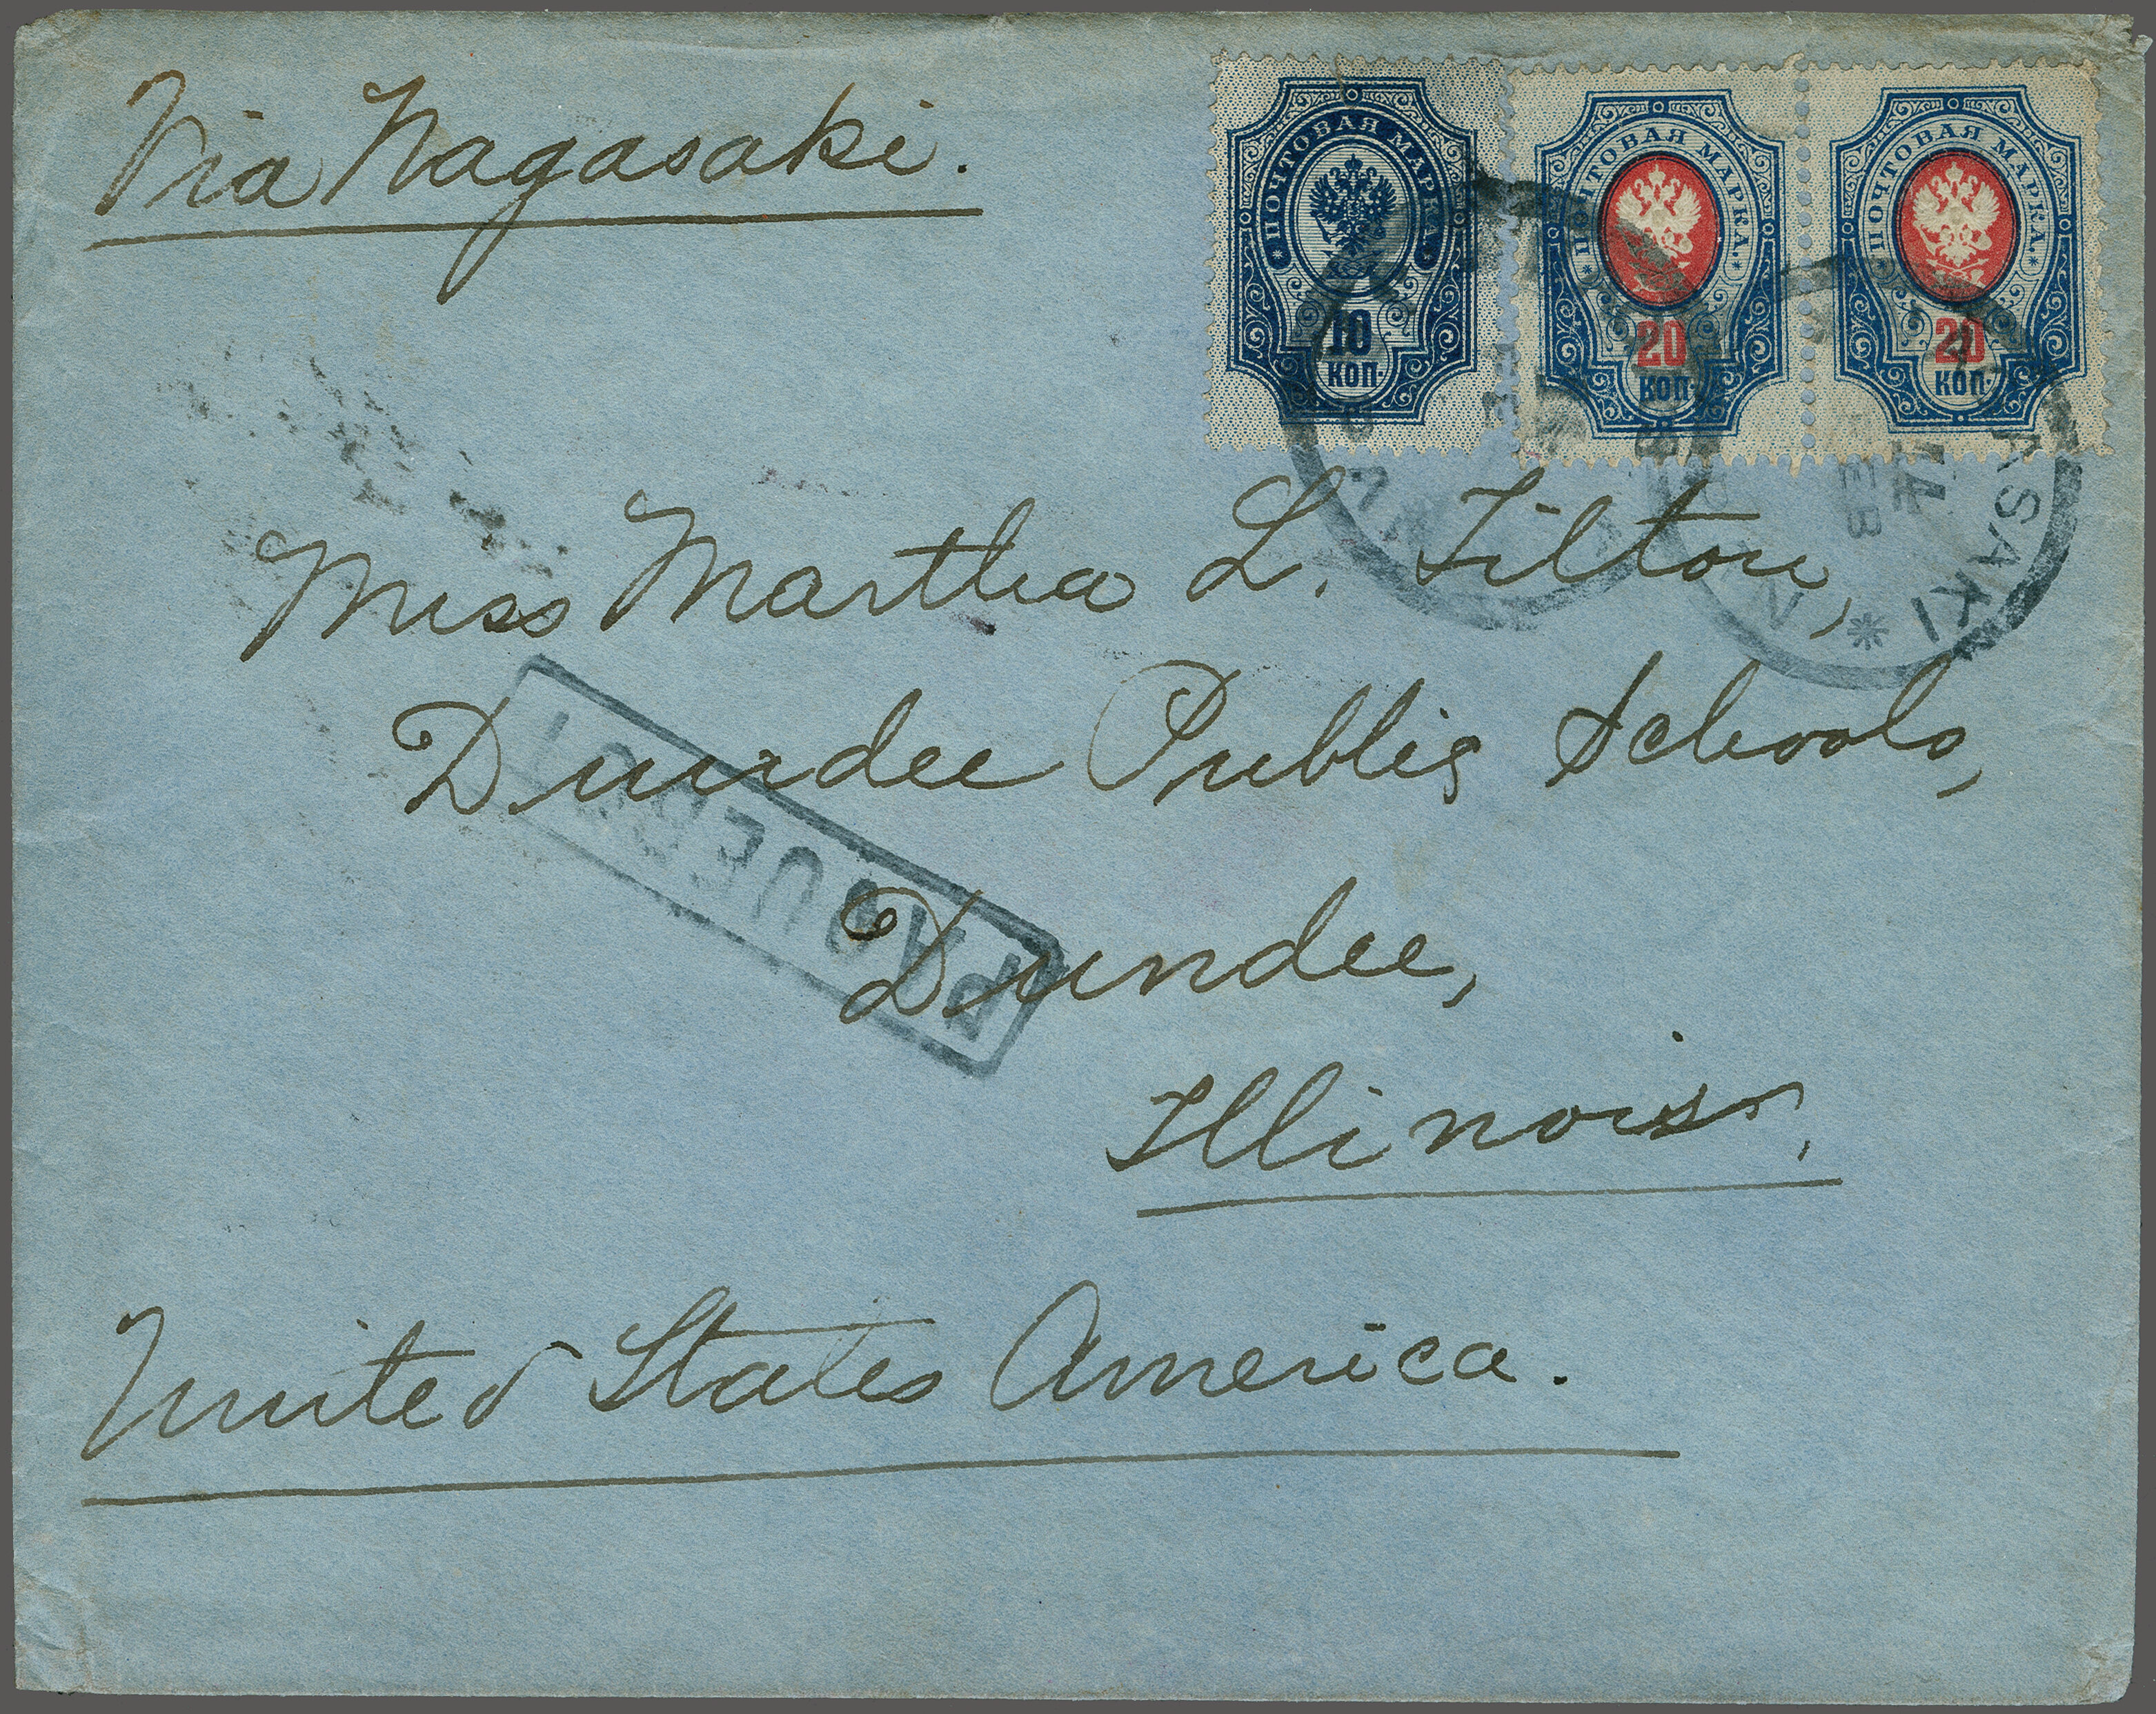 Via Nagasaki.
ПОЧТОВАЯ МАРКА
10
КОП.
ПОЧТОВАЯ МАРКА
20
КОП.
ПОЧТОВАЯ МАРКА
20
КОП.
FEB
NAGASAKI
Miss Martha L. Tilton,
Dundee Public Schools,
PAQUEBOT
Dundee,
Illinois.
United States America.